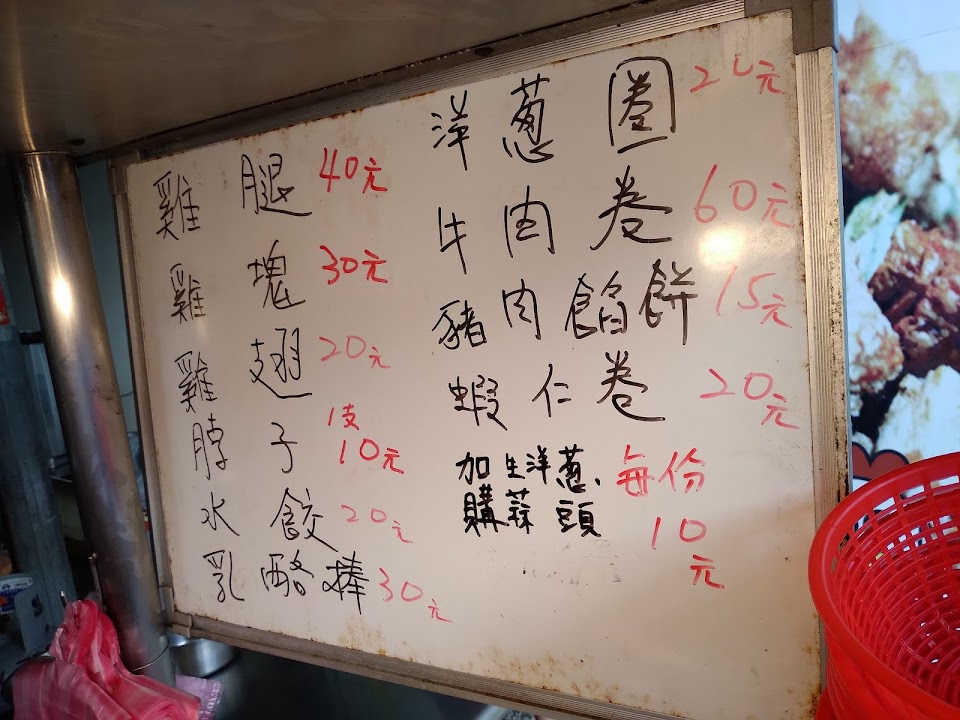 雞腿 40元
雞塊 30元
雞翅 20元
脖子 1支10元
水餃 20元
乳酪棒 30元
洋蔥圈 20元
牛肉卷 60元
豬肉餡餅 15元
蝦仁卷 20元
加生洋蔥、每份
購蒜頭 10元